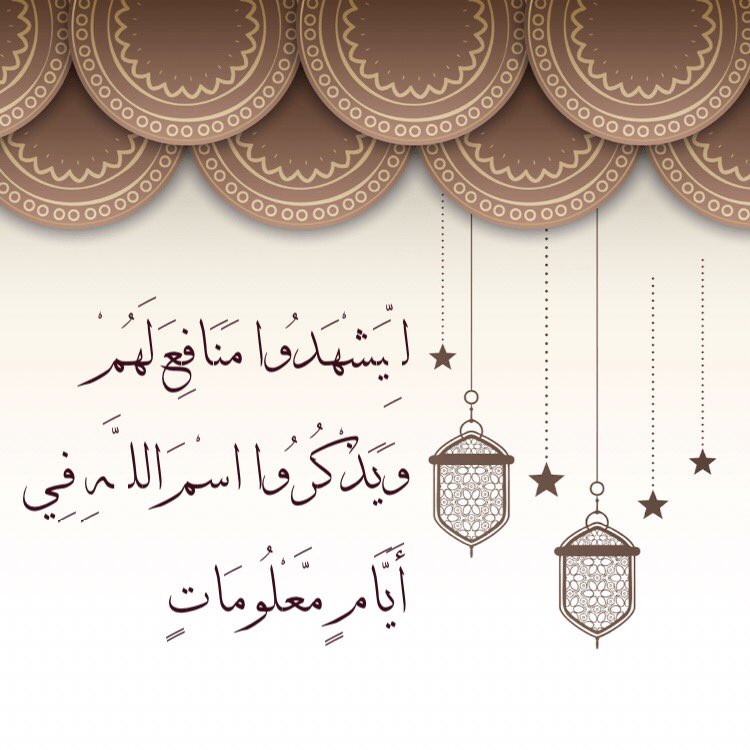 لِّيَشْهَدُوا مَنَافِعَ لَهُمْ
وَيَذْكُرُوا اسْمَ اللَّهِ فِي
أَيَّامٍ مَّعْلُومَاتٍ